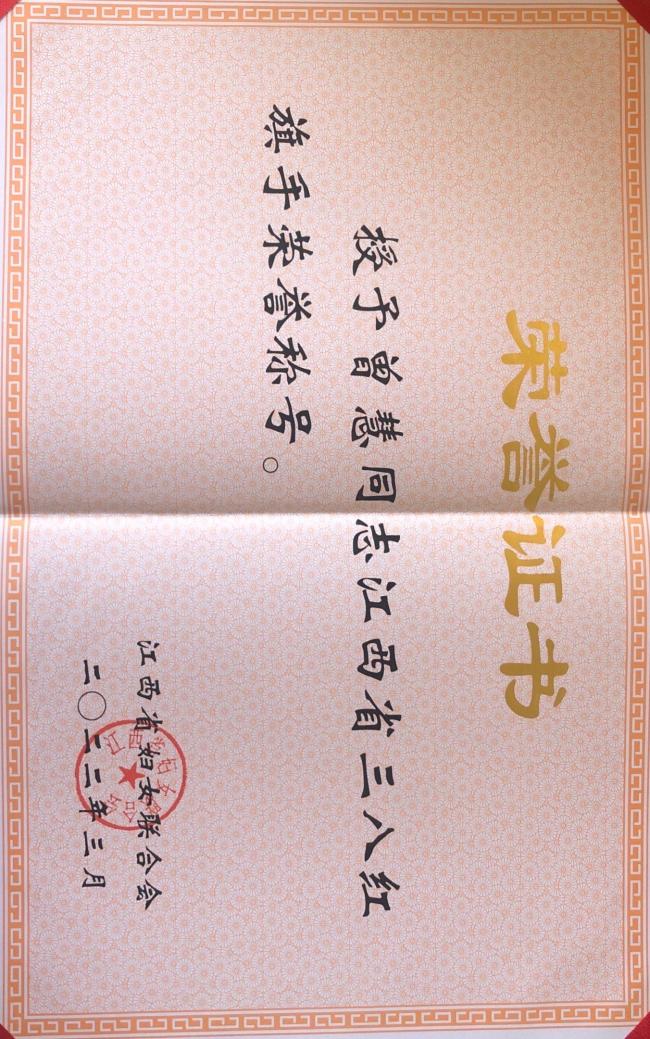 荣誉证书
授予曾慧同志江西省三八红
旗手荣誉称号。
江西省妇女联合会
二〇二二年三月